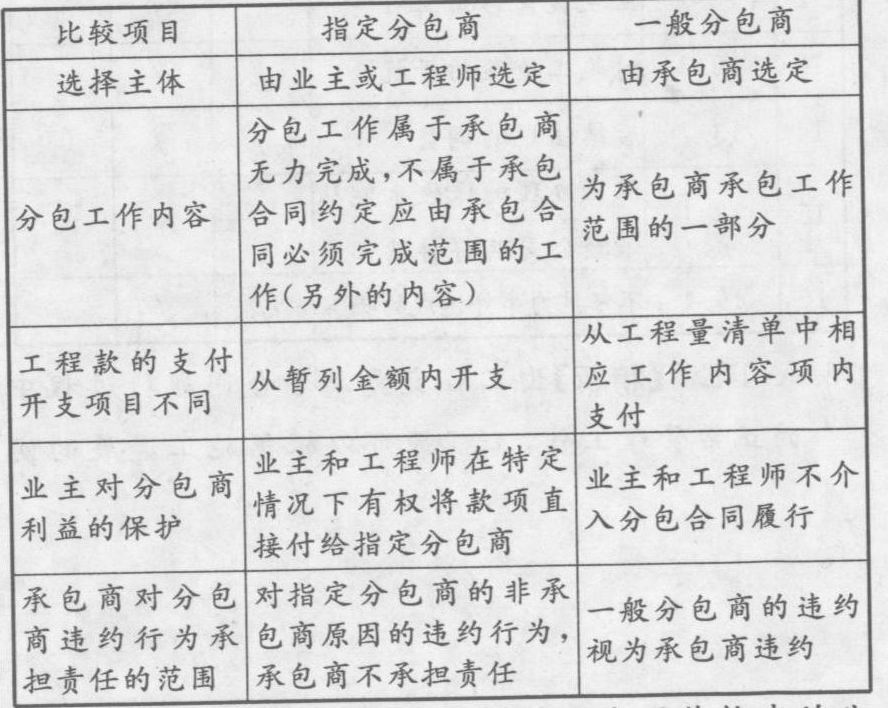 比较项目
指定分包商
一般分包商
选择主体
由业主或工程师选定
由承包商选定
分包工作内容
分包工作属于承包商
无力完成,不属于承包
合同约定应由承包合
同必须完成范围的工
作(另外的内容)
为承包商承包工作
范围的一部分
工程款的支付
开支项目不同
从暂列金额内开支
从工程量清单中相
应工作内容项内
支付
业主对分包商
利益的保护
业主和工程师在特定
情况下有权将款项直
接付给指定分包商
业主和工程师不介
入分包合同履行
承包商对分包
商违约行为承
担责任的范围
对指定分包商的非承
包商原因的违约行为,
承包商不承担责任
一般分包商的违约
视为承包商违约